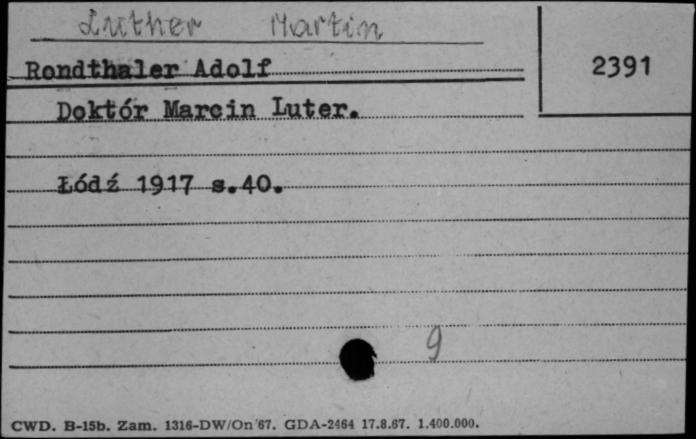 Luther Martin
Rondthaler Adolf
2391
Doktór Marcin Luter.
Łódź 1917 s.40.
9
CWD. B-15b. Zam. 1316-DW/On 67. GDA-2464 17.8.67. 1.400.000.